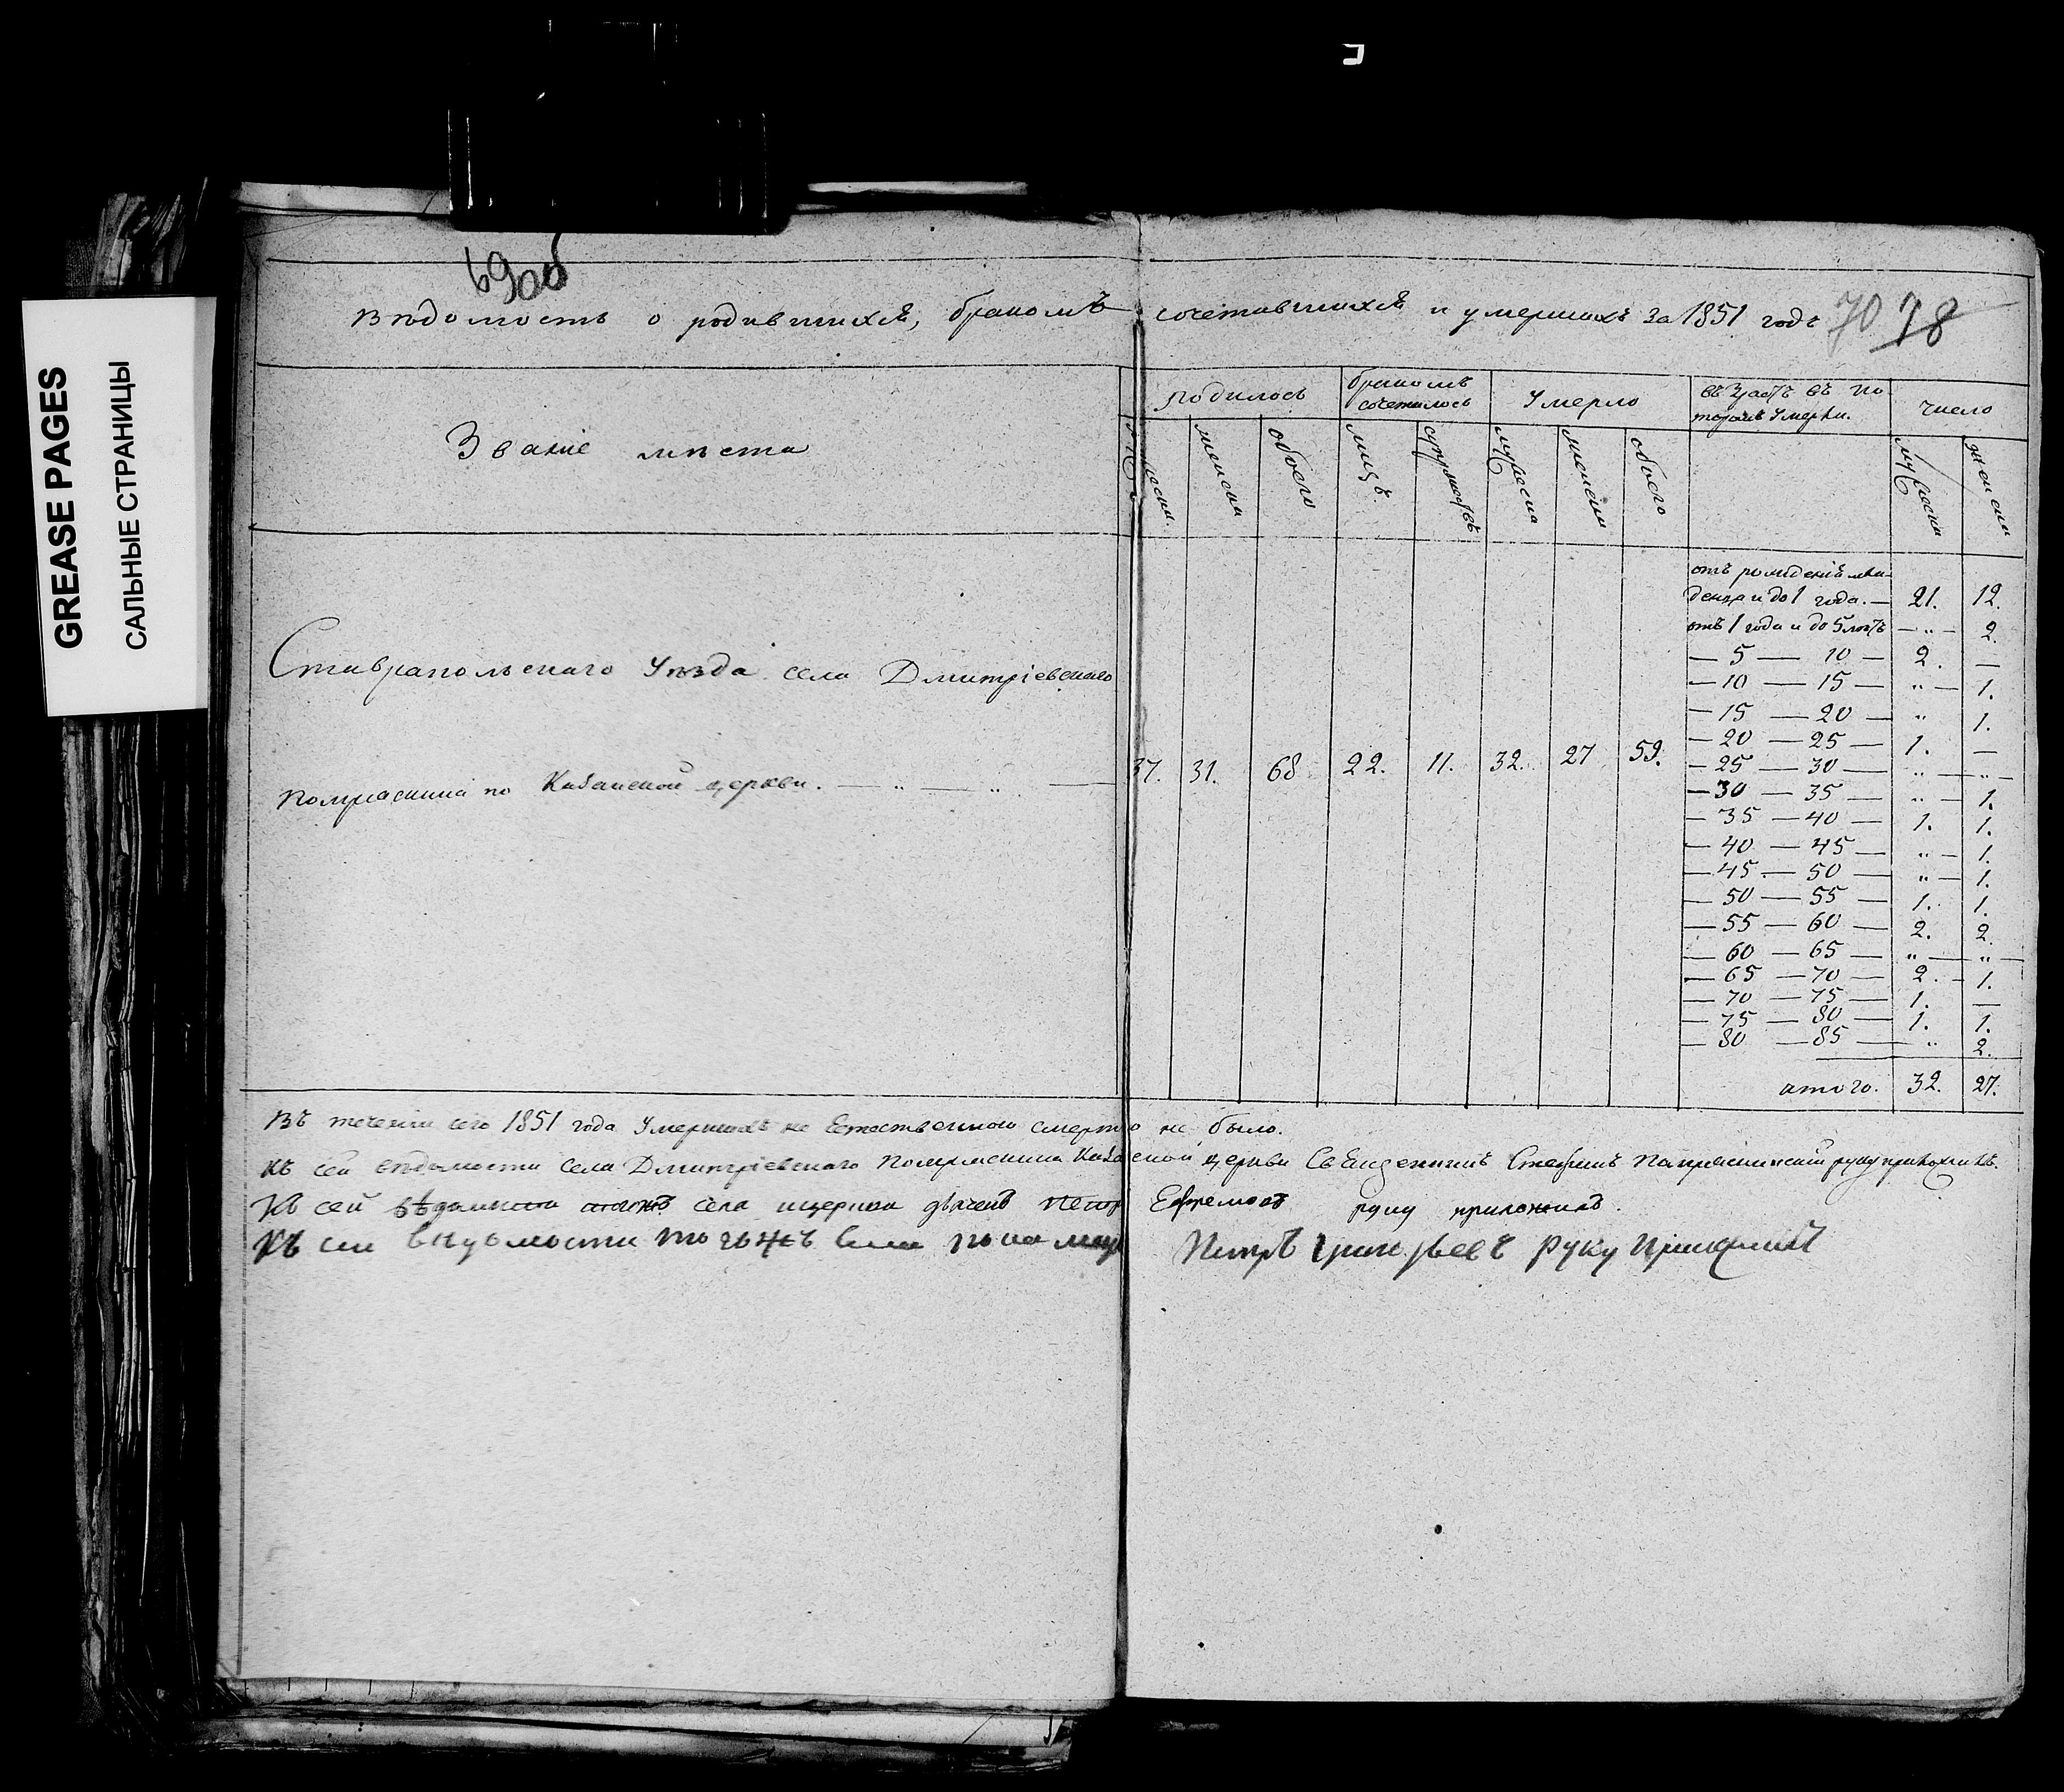 GREASE PAGES
САЛЬНЫЕ СТРАНИЦЫ
69об
Вѣдомость о родившихся, бракомъ сочетавшихся и умершихъ за 1851 годъ 70 78
Званіе мѣста
Родилось
бракомъ сочеталось
Умерло
въ которомъ умерли.
число
женска
обоего
лицъ.
супружествъ
мужеска
женска
обоего
мужеска
женска
Ставрапольскаго Уѣзда села Дмитріевскаго
по Казанской церкви. — „ — „ —
37. 31. 68 22. 11. 32. 27 59.
отъ рожденія мла-
денца и до 1 года. — 21. 12.
отъ 1 года и до 5 лѣтъ — „ — 2.
— 5 — 10 — 2. —
— 10 — 15 — „ — 1.
— 15 — 20 — „ 1.
— 20 — 25 — 1. —
— 25 — 30 — „ — „ —
— 30 — 35 — „ — 1.
— 35 — 40 — 1. 1.
— 40 — 45 — „ — 1.
— 45 — 50 — „ — 1.
— 50 — 55 — 1. 1.
— 55 — 60 — 2. 2.
— 60 — 65 — „ — „ —
— 65 — 70 — 2. 1.
— 70 — 75 — 1. —
— 75 — 80 — 1. 1.
— 80 — 85 — „ 2.
итого. 32. 27.
Въ теченіи сего 1851 года Умершихъ не Естественною смертію не было.
Къ сей вѣдомости села Дмитріевскаго Казанской церкви Священникъ Стефанъ руку приложилъ.
Къ сей вѣдомости села ицеркви дьячекъ Петръ Ефремовъ руку приложилъ.
Къ сей вѣдомости тогожъ села понамарь Петръ Григорьевъ руку приложилъ